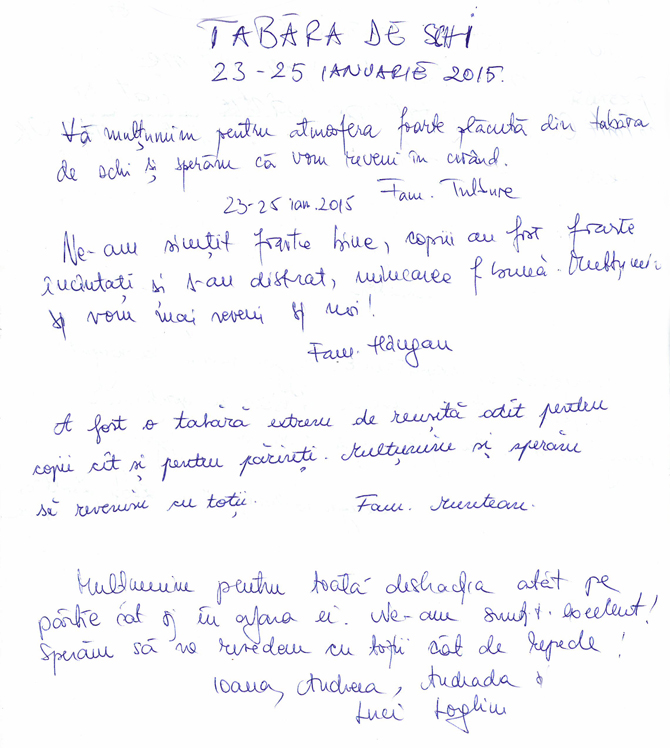 TABĂRA DE SCHI
23-25 IANUARIE 2015.
Vă mulțumim pentru atmosfera foarte plăcută din tabăra
de schi și sperăm că vom reveni în curând.
23-25 ian. 2015 Fam.
Ne-am simțit foarte bine, copiii au fost foarte
încîntați și s-au distrat, mîncarea f bună.
și vom mai reveni și noi!
Fam. Hăugan
A fost o tabără extrem de reușită atît pentru
copii cît și pentru părinți. Mulțumim și sperăm
să revenim cu toții. Fam. Muntean.
Multumim pentru toată atât pe
pârtie cât și în afara ei. Ne-am simțit excelent!
Sperăm să ne revedem cu toții cât de repede!
Ioana, Andreea, Andrada &
Luci